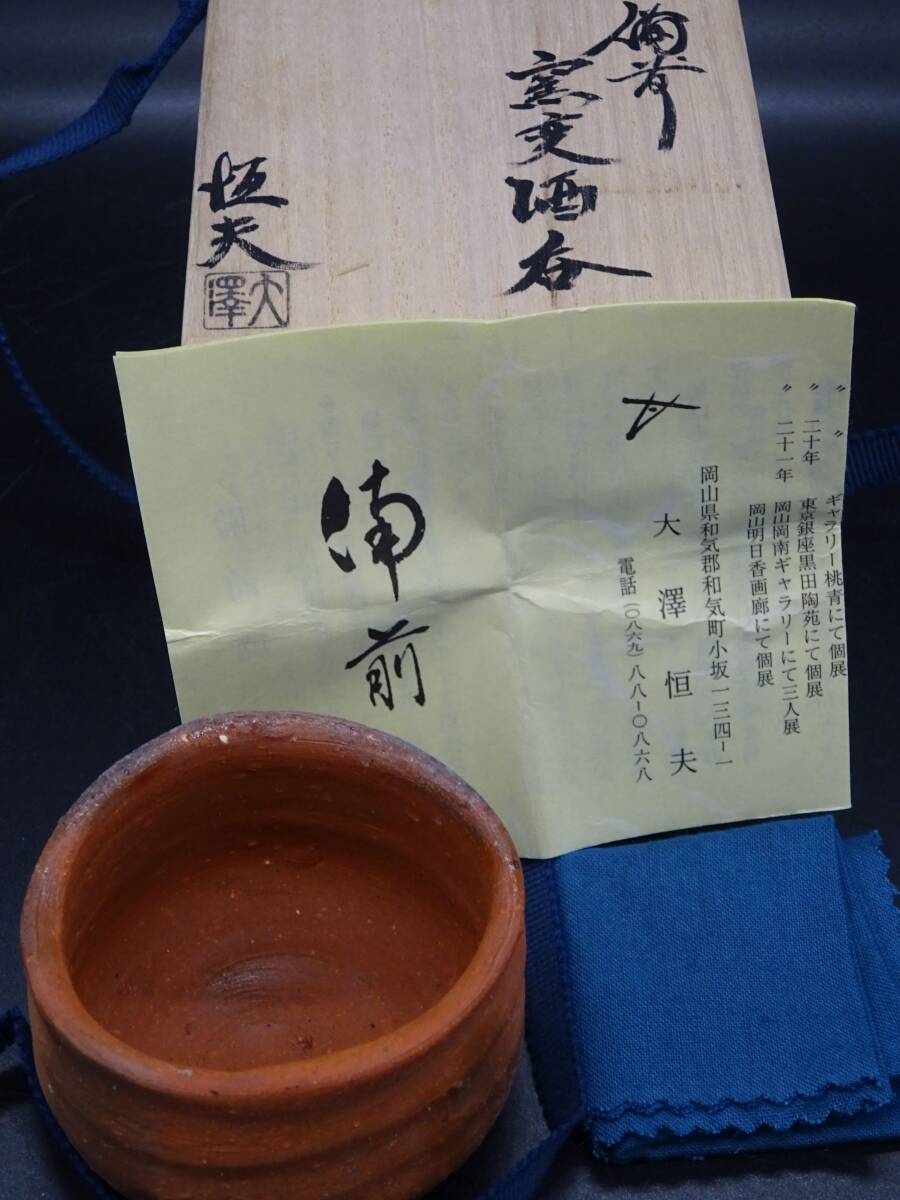 備前
窯変酒呑
恒夫
大澤
〃 〃 ギャラリー桃青にて個展
〃 二十年 東京銀座黒田陶苑にて個展
〃 二十一年 岡山岡南ギャラリーにて三人展
岡山明日香画廊にて個展
岡山県和気郡和気町小坂一三四ー一
大澤恒夫
電話(〇八六九)八八ー〇八六八
備前